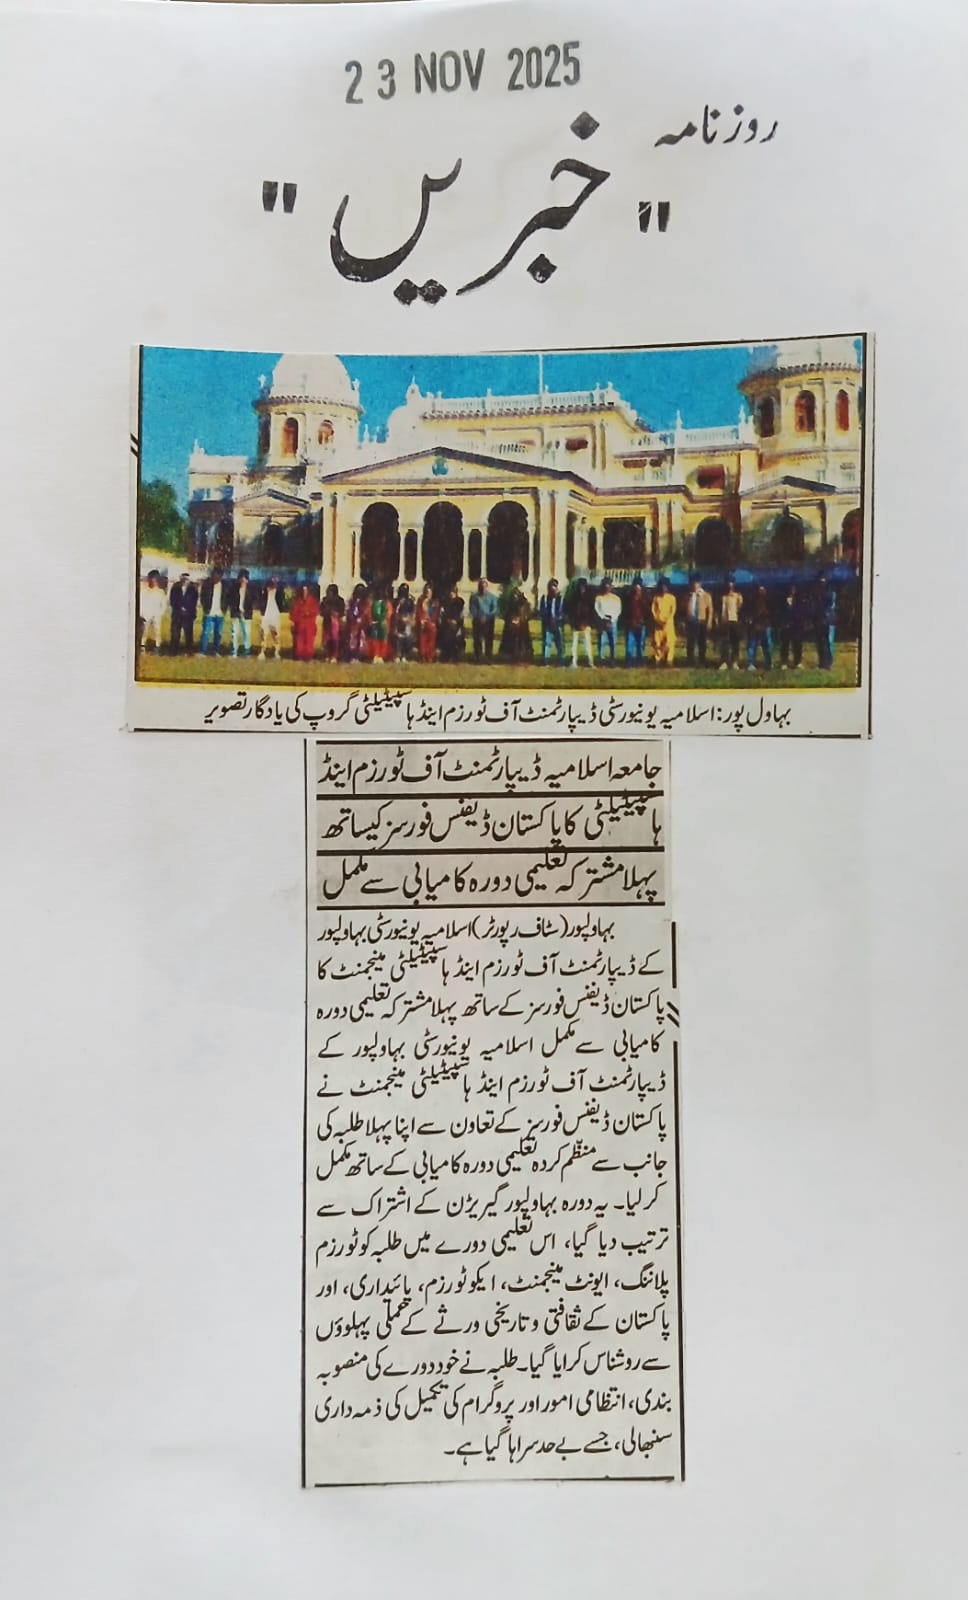 23 NOV 2025
روزنامہ
"خبریں"
بہاول پور: اسلامیہ یونیورسٹی ڈیپارٹمنٹ آف ٹورزم اینڈ ہاسپیٹیلٹی گروپ کی یادگار تصویر
جامعہ اسلامیہ ڈیپارٹمنٹ آف ٹورزم اینڈ
ہاسپیٹیلٹی کا پاکستان ڈیفنس فورسز کیساتھ
پہلا مشترکہ تعلیمی دورہ کامیابی سے مکمل
بہاولپور (سٹاف رپورٹر) اسلامیہ یونیورسٹی بہاولپور
کے ڈیپارٹمنٹ آف ٹورزم اینڈ ہاسپیٹیلٹی مینجمنٹ کا
پاکستان ڈیفنس فورسز کے ساتھ پہلا مشترکہ تعلیمی دورہ
کامیابی سے مکمل اسلامیہ یونیورسٹی بہاولپور کے
ڈیپارٹمنٹ آف ٹورزم اینڈ ہاسپیٹیلٹی مینجمنٹ نے
پاکستان ڈیفنس فورسز کے تعاون سے اپنا پہلا طلبہ کی
جانب سے منظّم کردہ تعلیمی دورہ کامیابی کے ساتھ مکمل
کر لیا۔ یہ دورہ بہاولپور گیریژن کے اشتراک سے
ترتیب دیا گیا، اس تعلیمی دورے میں طلبہ کو ٹورزم
پلاننگ، ایونٹ مینجمنٹ، ایکو ٹورزم، پائیداری، اور
پاکستان کے ثقافتی و تاریخی ورثے کے عملی پہلوؤں
سے روشناس کرایا گیا۔ طلبہ نے خود دورے کی منصوبہ
بندی، انتظامی امور اور پروگرام کی تکمیل کی ذمہ داری
سنبھالی، جسے بے حد سراہا گیا ہے۔